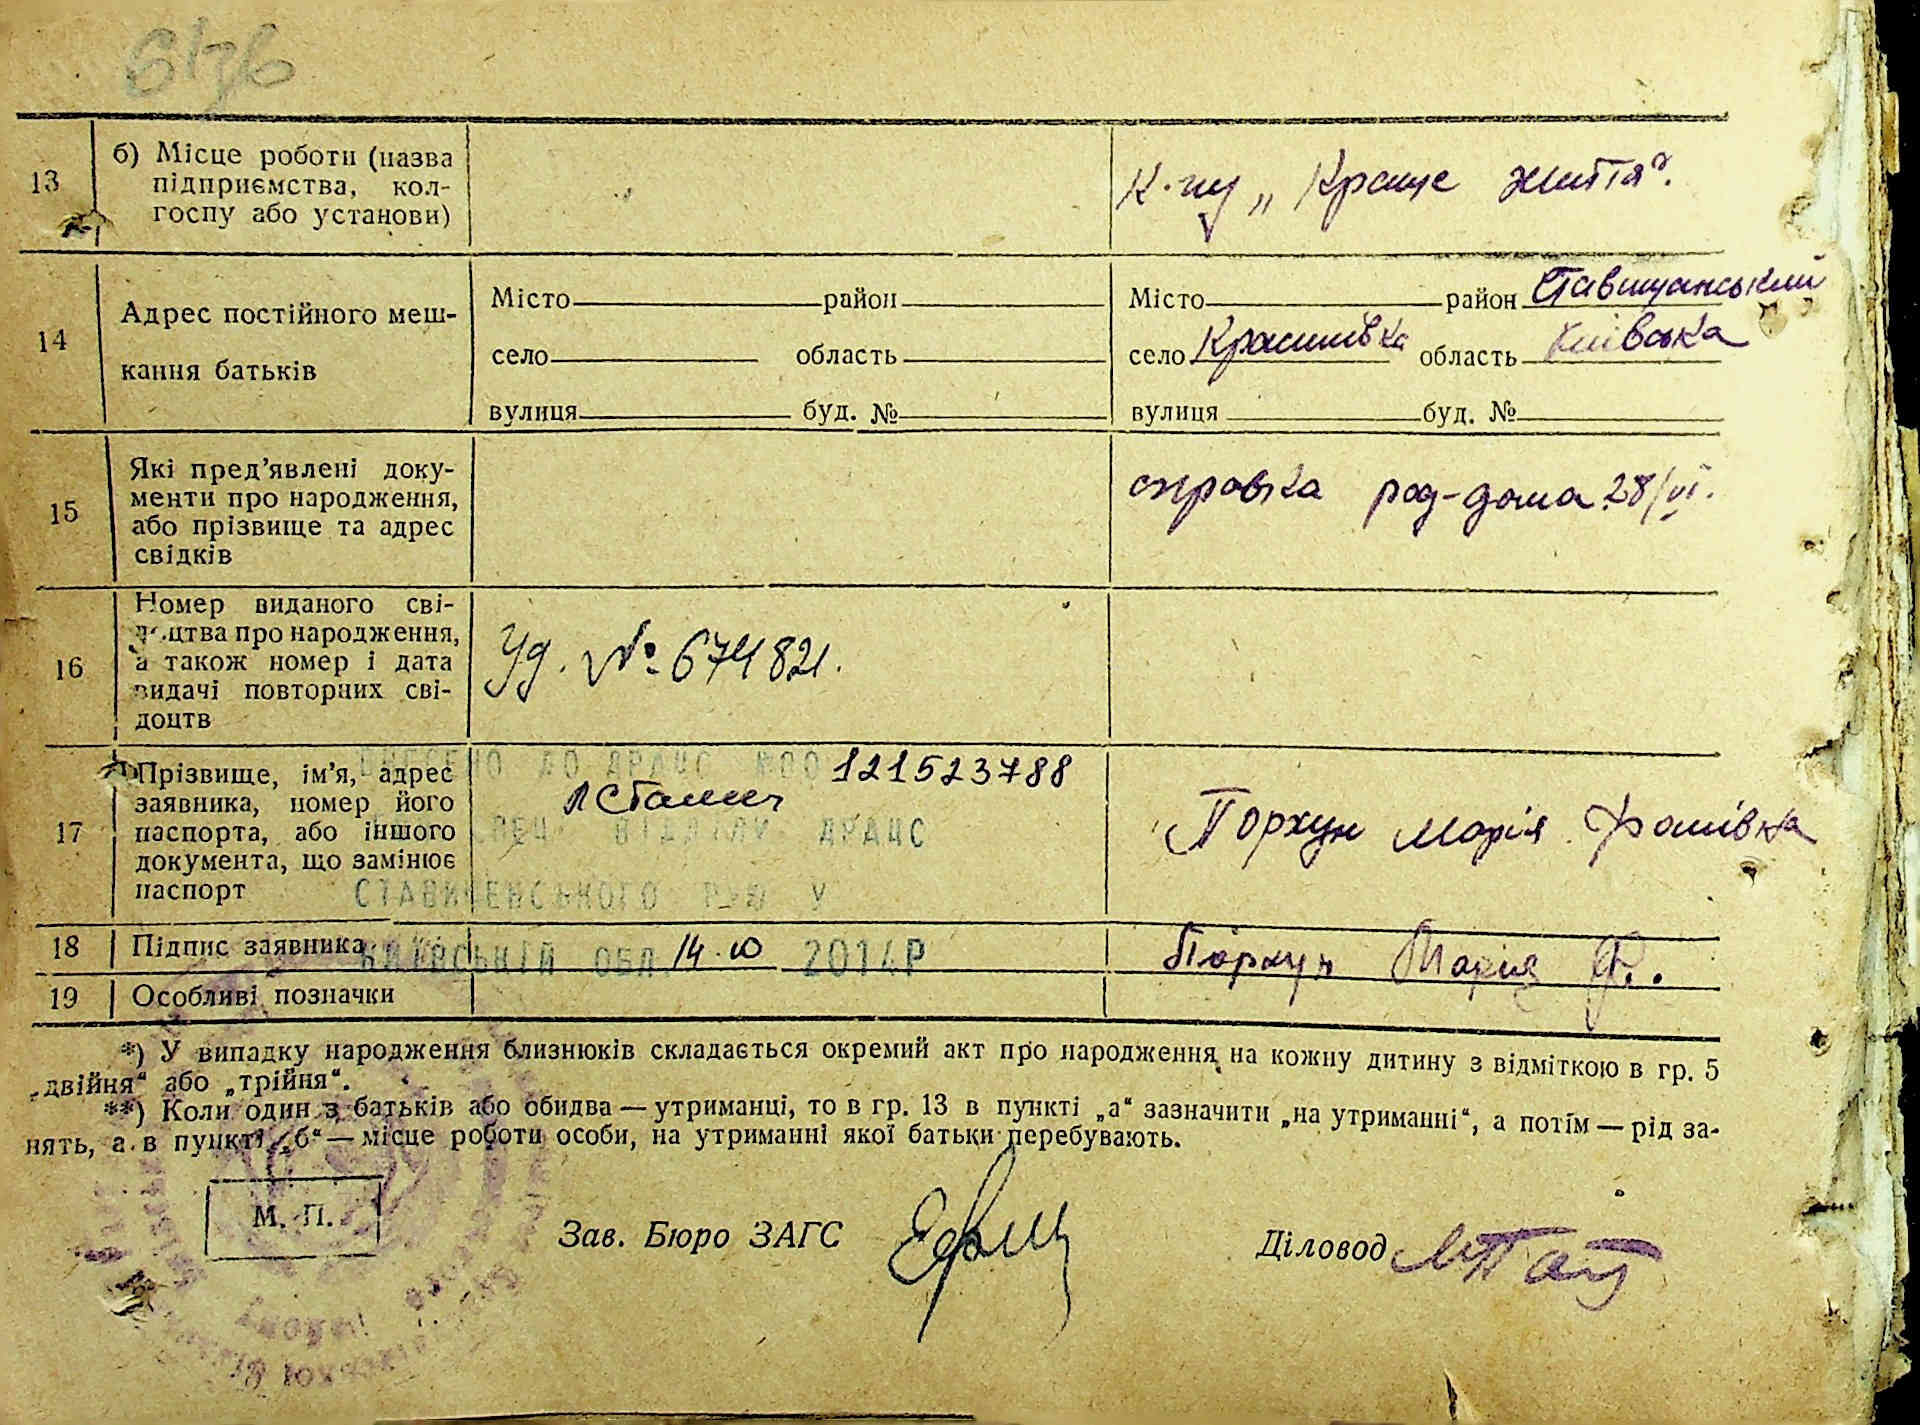 6176
13
б) Місце роботи (назва
підприємства, кол-
госпу або установи)
К-пу „Краще життя".
14
Адрес постійного меш-
кання батьків
Місто район
село область
вулиця буд. №
Місто район Ставищанський
село Красилівка область Київська
вулиця буд. №
15
Які пред'явлені доку-
менти про народження,
або прізвище та адрес
свідків
справка род-дома 28/VI.
16
Номер виданого сві-
доцтва про народження,
а також номер і дата
видачі повторних сві-
доцтв
Уд. № 674821.
17
Прізвище, ім'я, адрес
заявника, номер його
паспорта, або іншого
документа, що замінює
паспорт
ВНЕСЕНО ДО ДРАЦС №00 121523788
ВІДДІЛУ ДРАЦС
СТАВИЩЕНСЬКОГО РУЮ У
КИЇВСЬКІЙ ОБЛ. 14.10 2014Р
Порхун Марія Фомівка
18
Підпис заявника
Порхун Марія Ф.
19
Особливі позначки
*) У випадку народження близнюків складається окремий акт про народження на кожну дитину з відміткою в гр. 5
„двійня" або „трійня".
**) Коли один з батьків або обидва — утриманці, то в гр. 13 в пункті „а" зазначити „на утриманні", а потім — рід за-
нять, а в пункті „б" — місце роботи особи, на утриманні якої батьки перебувають.
М. П.
Зав. Бюро ЗАГС
Діловод